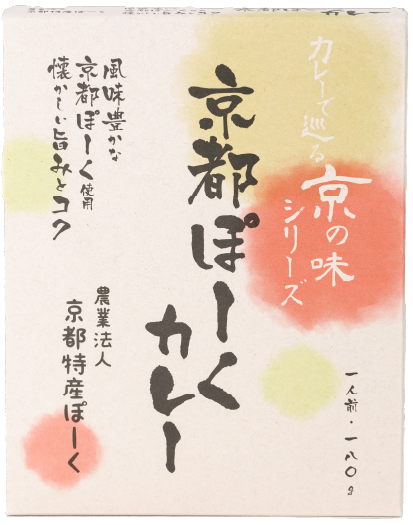 カレーで巡る
京の味
シリーズ
京都ぽーく
カレー
風味豊かな
京都ぽーく使用
懐かしい旨みとコク
農業法人
京都特産ぽーく
一人前・一八〇g